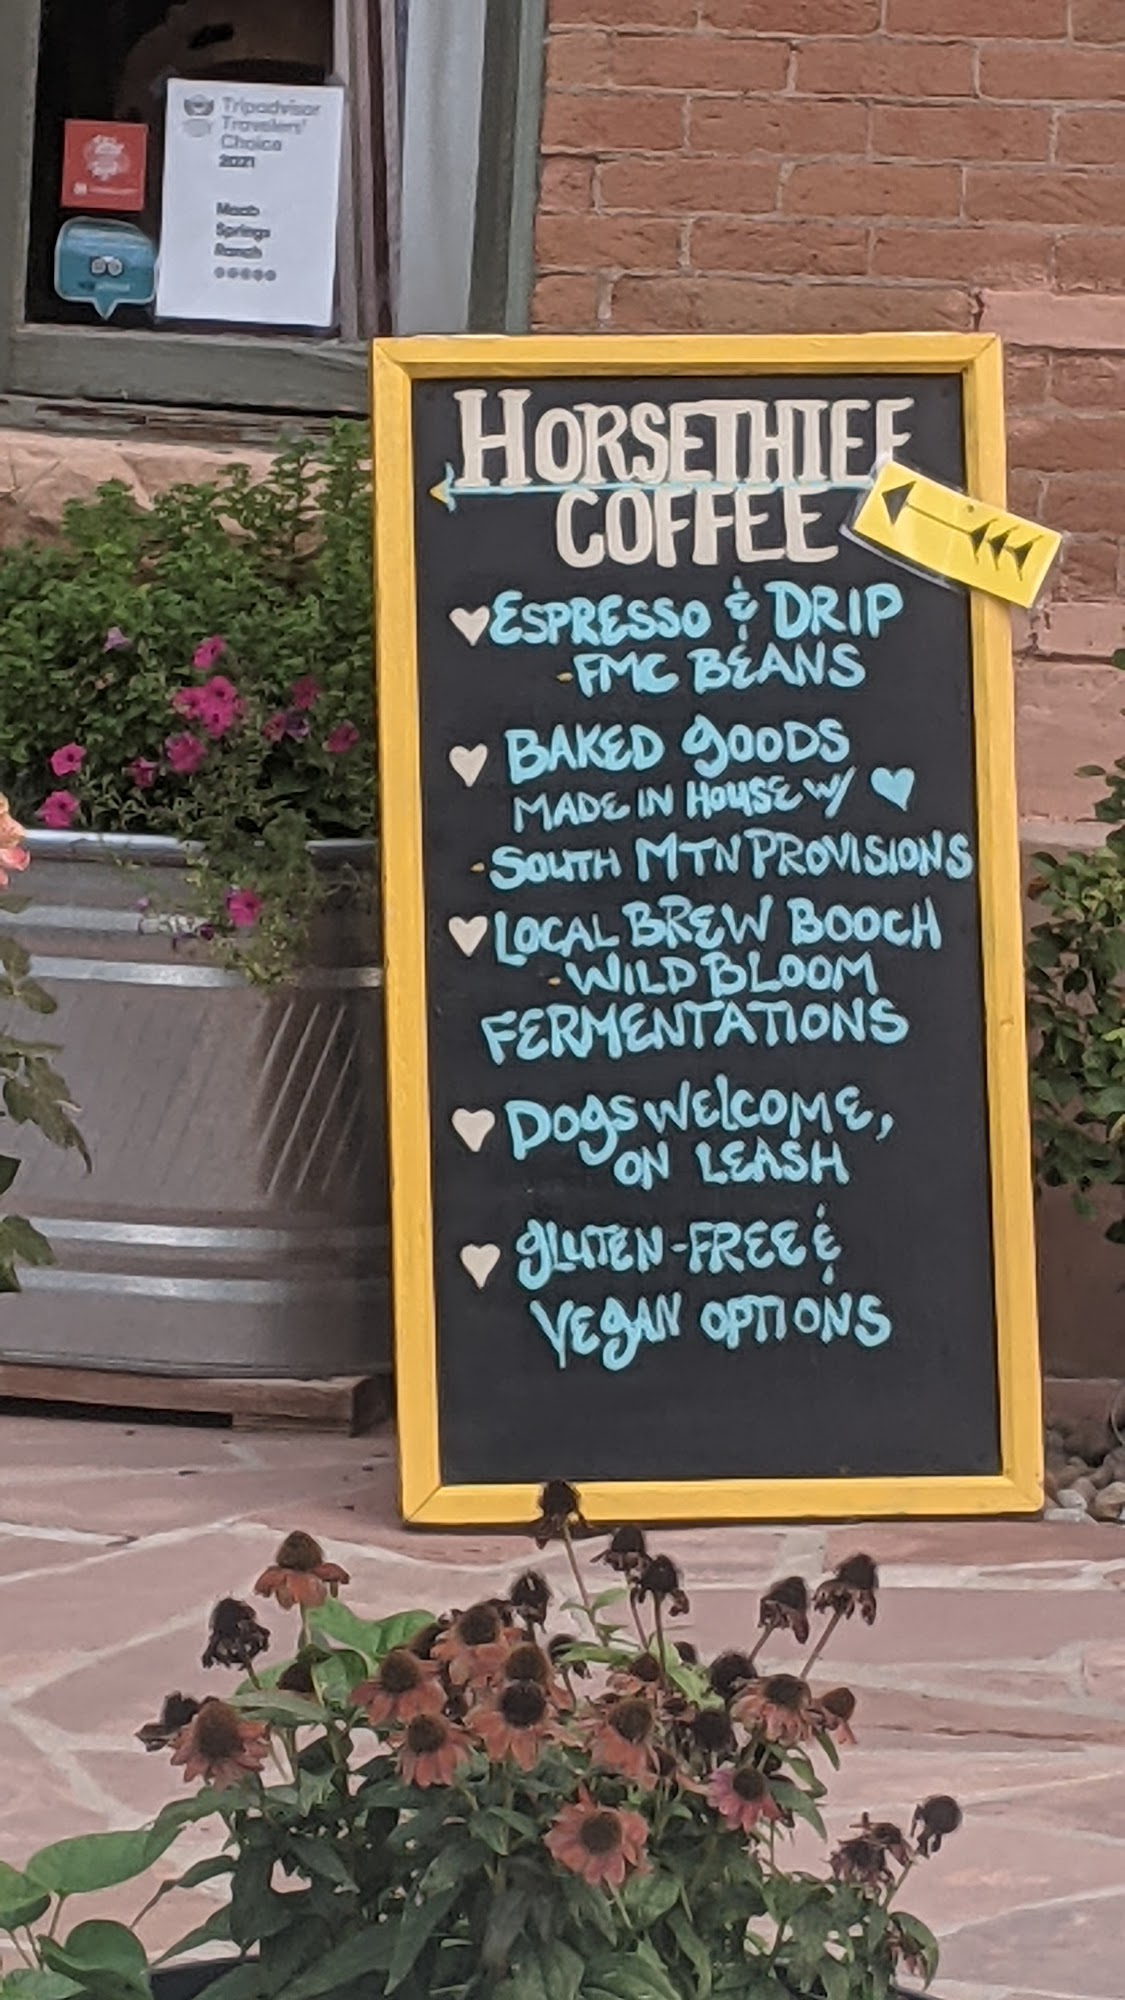 Tripadvisor
Travelers'
Choice
2021
Moab
Springs
Ranch
HORSETHIEF
COFFEE
ESPRESSO & DRIP
-FMC BEANS
BAKED GOODS
MADE IN HOUSE W/
-SOUTH MTN PROVISIONS
LOCAL BREW BOOCH
-WILD BLOOM
FERMENTATIONS
DOgS WELCOME,
ON LEASH
gLUTEN-FREE &
VEGAN OPTIONS